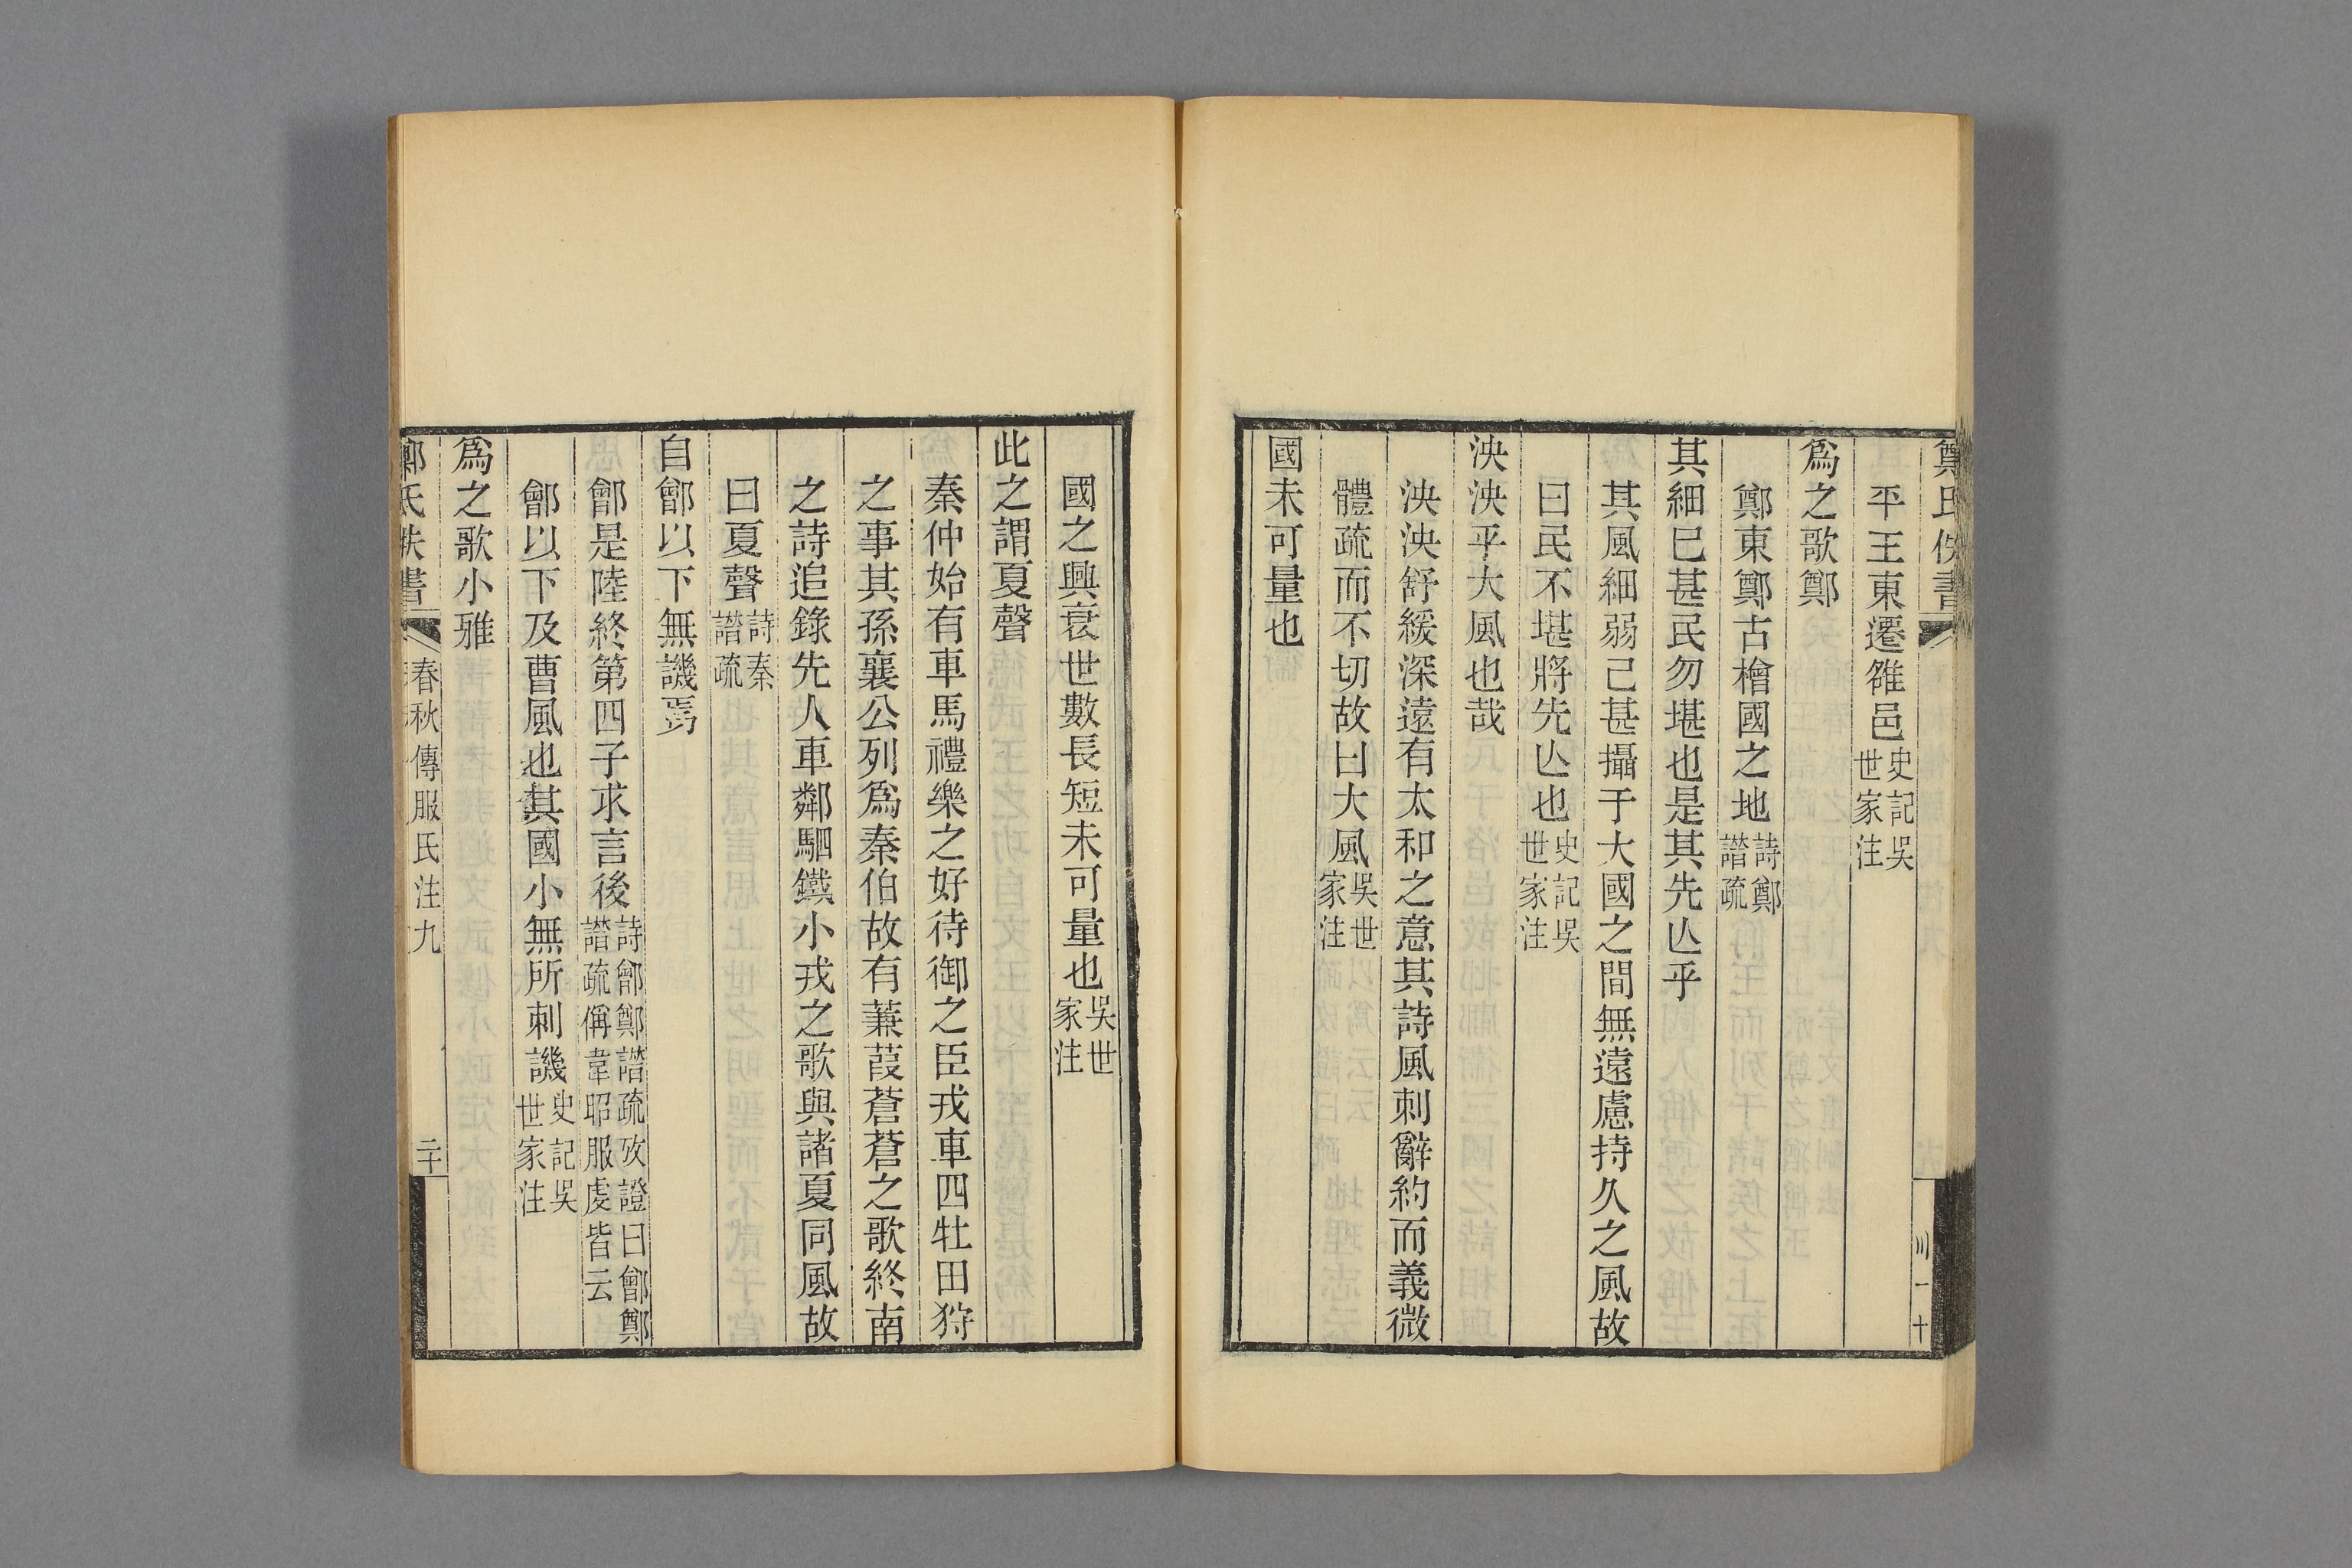 鄭氏佚書
平王東遷雒邑史記吳世家注
爲之歌鄭
鄭東鄭古檜國之地詩鄭譜疏
其細已甚民勿堪也是其先亾乎
其風細弱己甚攝于大國之間無遠慮持久之風故
曰民不堪將先亾也史記吳世家注
泱泱乎大風也哉
泱泱舒緩深遠有太和之意其詩風刺辭約而義微
體疏而不切故曰大風吳世家注
國未可量也
國之興衰世數長短未可量也吳世家注
此之謂夏聲
秦仲始有車馬禮樂之好待御之臣戎車四牡田狩
之事其孫襄公列爲秦伯故有蒹葭蒼蒼之歌終南
之詩追錄先人車鄰駟鐵小戎之歌與諸夏同風故
曰夏聲詩秦譜疏
自鄶以下無譏焉
鄶是陸終第四子求言後詩鄶鄭譜疏攷證曰鄶鄭譜疏偁韋昭服虔皆云
鄶以下及曹風也其國小無所刺譏史記吳世家注
爲之歌小雅
鄭氏佚書 春秋傳服氏注九 二十